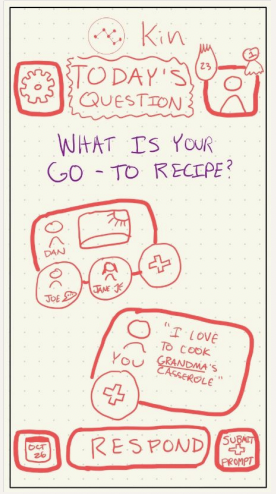 Kin
TODAY'S
QUESTION
23
1
WHAT IS YOUR
GO-TO RECIPE?
DAN
JOE
JANE JR
YOU
"I LOVE
TO COOK
GRANDMA'S
CASSEROLE"
OCT
26
RESPOND
SUBMIT
PROMPT